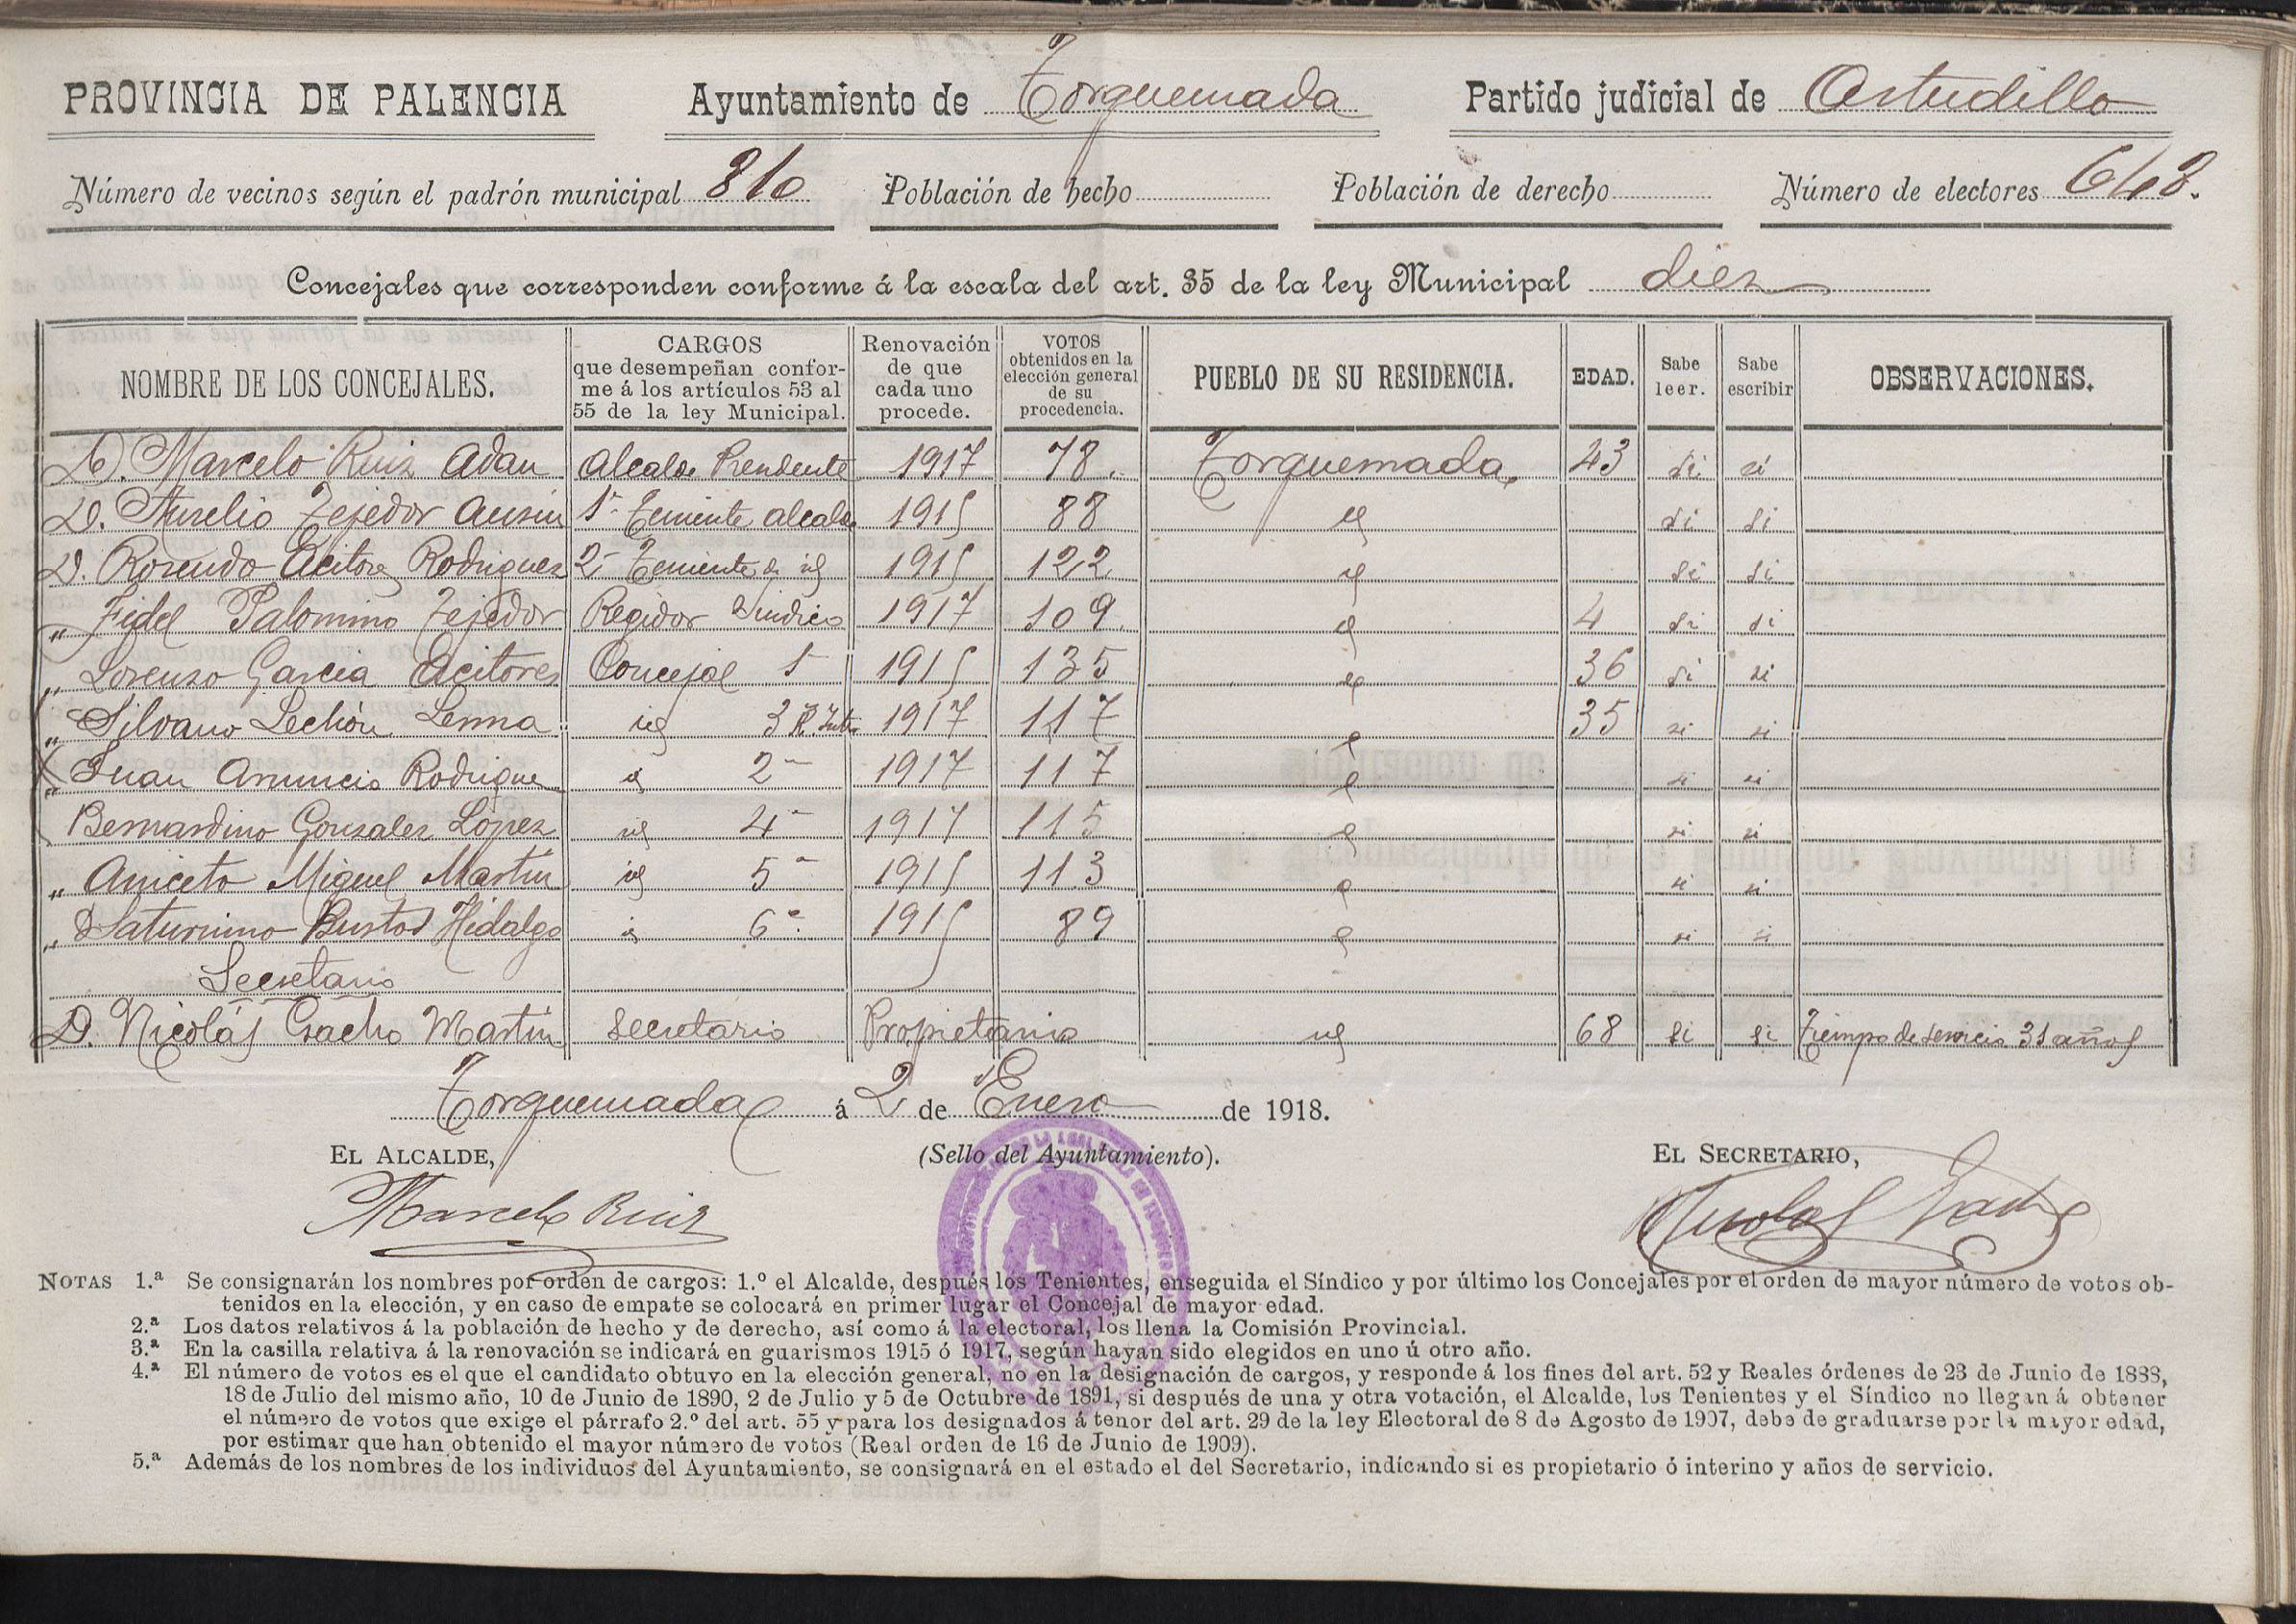 PROVINCIA DE PALENCIA Ayuntamiento de Torquemada Partido judicial de Astudillo
Número de vecinos según el padrón municipal 816 Población de hecho Población de derecho Número de electores 643.
Concejales que corresponden conforme á la escala del art. 35 de la ley Municipal diez
NOMBRE DE LOS CONCEJALES. CARGOS que desempeñan confor-me á los artículos 53 al 55 de la ley Municipal. Renovación de que cada uno procede. VOTOS obtenidos en la elección general de su procedencia. PUEBLO DE SU RESIDENCIA. EDAD. Sabe leer. Sabe escribir OBSERVACIONES.
D. Marcelo Ruiz Adan Alcalde Presidente 1917 78. Torquemada 43 si si
D. Aurelio Tejedor Ausin 1º Teniente alcalde 1915 88 id si si
D. Rosendo Acitores Rodriguez 2º Teniente de id 1915 122 id si si
" Fidel Palomino Tejedor Regidor Sindico 1917 109 id 4 si si
" Lorenzo Garcia Acitores Concejal 1º 1915 135 id 36 si si
" Silvano Lechón Lerma id 3º 1917 117 id 35 si si
" Juan Asuncio Rodrigue id 2º 1917 117 id si si
Bernardino Gonzalez López id 4º 1917 115 id si si
" Aniceto Miguel Martin id 5º 1915 113 id si si
" Saturnino Bustos Hidalgo id 6º 1915 89 id si si
Secretario
D. Nicolás Gacho Martin Secretario Propietario id 68 si si Tiempo de servicio 31 años
Torquemada á 2 de Enero de 1918.
EL ALCALDE, (Sello del Ayuntamiento). EL SECRETARIO,
Marcelo Ruiz Nicolas Gacho
NOTAS 1.ª Se consignarán los nombres por orden de cargos: 1.º el Alcalde, después los Tenientes, enseguida el Síndico y por último los Concejales por el orden de mayor número de votos ob-
tenidos en la elección, y en caso de empate se colocará en primer lugar el Concejal de mayor edad.
2.ª Los datos relativos á la población de hecho y de derecho, así como á la electoral, los llena la Comisión Provincial.
3.ª En la casilla relativa á la renovación se indicará en guarismos 1915 ó 1917, según hayan sido elegidos en uno ú otro año.
4.ª El número de votos es el que el candidato obtuvo en la elección general, no en la designación de cargos, y responde á los fines del art. 52 y Reales órdenes de 23 de Junio de 1888,
18 de Julio del mismo año, 10 de Junio de 1890, 2 de Julio y 5 de Octubre de 1891, si después de una y otra votación, el Alcalde, los Tenientes y el Síndico no llegan á obtener
el número de votos que exige el párrafo 2.º del art. 55 y para los designados á tenor del art. 29 de la ley Electoral de 8 de Agosto de 1907, debe de graduarse por la mayor edad,
por estimar que han obtenido el mayor número de votos (Real orden de 16 de Junio de 1909).
5.ª Además de los nombres de los individuos del Ayuntamiento, se consignará en el estado el del Secretario, indicando si es propietario ó interino y años de servicio.